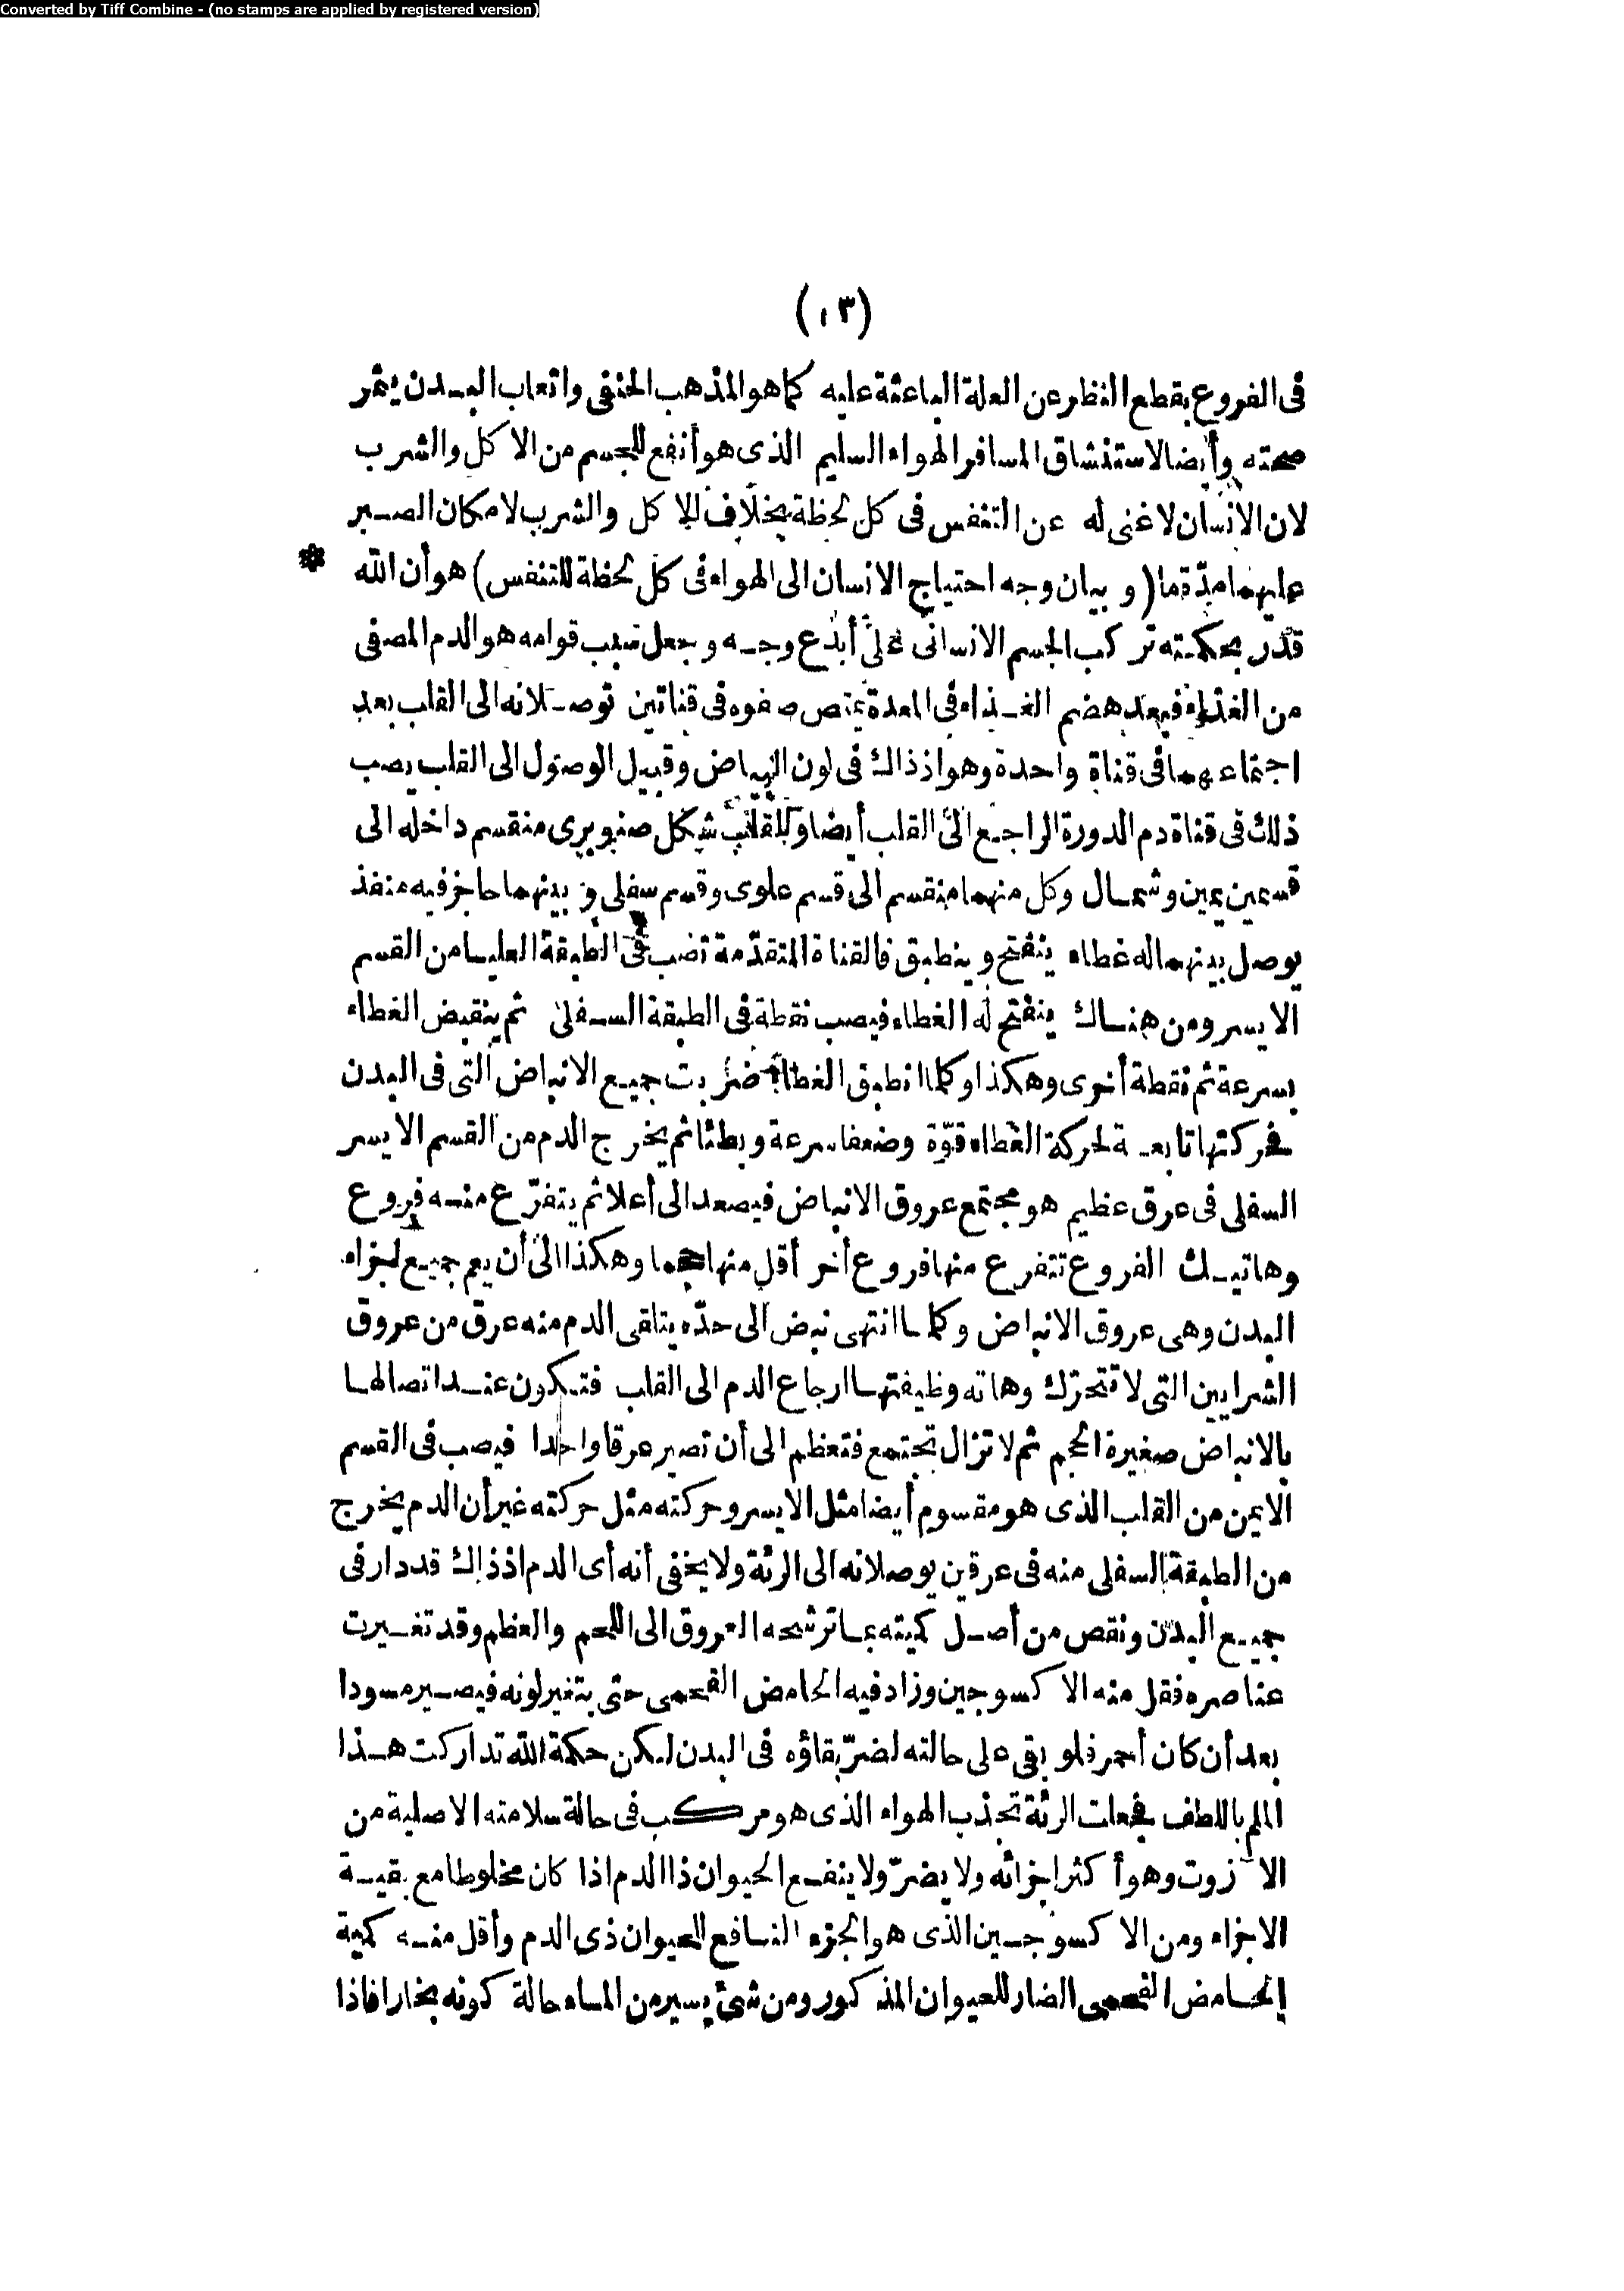 Converted by Tiff Combine - (no stamps are applied by registered version)
(١٣)
فى الفروع بقطع النظر عن العلة الباعثة عليه كما هو المذهب الحنفى واتعاب البدن يثمر
صحته وأيضا لاستنشاق المسافر الهواء السليم الذى هو أنفع للجسم من الاكل والشرب
لان الانسان لاغنى له عن التنفس فى كل لحظة بخلاف الاكل والشرب لامكان الصبر
عليهما مدّة ما (وبيان وجه احتياج الانسان الى الهواء فى كل لحظة للتنفس) هو أن الله *
قدّر بحكمته تركب الجسم الانسانى على أبدع وجه وجعل سبب قوامه هو الدم المصفى
من الغذاء فبعد هضم الغذاء فى المعدة يمتص صفوه فى قناتين توصلانه الى القلب بعد
اجتماعهما فى قناة واحدة وهو اذ ذاك فى لون البياض وقبيل الوصول الى القلب يصب
ذلك فى قناة دم الدورة الراجع الى القلب أيضا وللقلب شكل صنوبرى منقسم داخله الى
قسمين يمين وشمال وكل منهما منقسم الى قسم علوى وقسم سفلى وبينهما حاجز فيه منفذ
يوصل بينهما له غطاء ينفتح وينطبق فالقناة المتقدّمة تصب فى الطبقة العليا من القسم
الايسر ومن هناك ينفتح له الغطاء فيصب نقطة فى الطبقة السفلى ثم ينقبض الغطاء
بسرعة ثم نقطة أخرى وهكذا وكلما انطبق الغطاء ضربت جميع الانباض التى فى البدن
فحركتها تابعة لحركة الغطاء قوّة وضعفا سرعة وبطئا ثم يخرج الدم من القسم الايسر
السفلى فى عرق عظيم هو مجتمع عروق الانباض فيصعد الى أعلا ثم يتفرّع منه فروع
وهاتيك الفروع تتفرع منها فروع أخر أقل منها حجما وهكذا الى أن يعم جميع اجزاء
البدن وهى عروق الانباض وكلما انتهى نبض الى حدّه يتلقى الدم منه عرق من عروق
الشرايين التى لا تتحرّك وهاته وظيفتها ارجاع الدم الى القلب فتكون عند اتصالها
بالانباض صغيرة الحجم ثم لا تزال تجتمع فتعظم الى أن تصير عرقا واحدا فيصب فى القسم
الايمن من القلب الذى هو مقسوم أيضا مثل الايسر وحركته مثل حركته غير أن الدم يخرج
من الطبقة السفلى منه فى عرقين يوصلانه الى الرئة ولا يخفى أنه أى الدم اذ ذاك قد دار فى
جميع البدن ونقص من أصل كميته بما ترشحه العروق الى اللحم والعظم وقد تغيرت
عناصره فقل منه الاكسوجين وزاد فيه الحامض الفحمى حتى يتغير لونه فيصير مسودا
بعد أن كان أحمر فلو بقى على حالته لضرّ بقاؤه فى البدن لكن حكمة الله تداركت هذا
الملم باللطف فجعلت الرئة تجذب الهواء الذى هو مركب فى حالة سلامته الاصلية من
الازوت وهو أكثر اجزائه ولا يضرّ ولا ينفع الحيوان ذا الدم اذا كان مخلوطا مع بقية
الاجزاء ومن الاكسوجين الذى هو الجزء النافع للحيوان ذى الدم وأقل منه كمية
الحامض الفحمى الضار للحيوان المذكور ومن شئ يسير من الماء حالة كونه بخارا فاذا